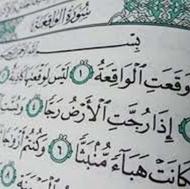 سُورَةُ الوَاقِعَةِ
بِسْمِ
وَقَعَتِ ٱلْوَاقِعَةُ ١ لَيْسَ لِوَقْعَتِهَا
إِذَا رُجَّتِ ٱلْأَرْضُ رَجًّا ٤ وَبُسَّتِ
كَانَتْ هَبَآءً مُّنۢبَثًّا ٦ وَكُنتُمْ أَزْوَٰجًا